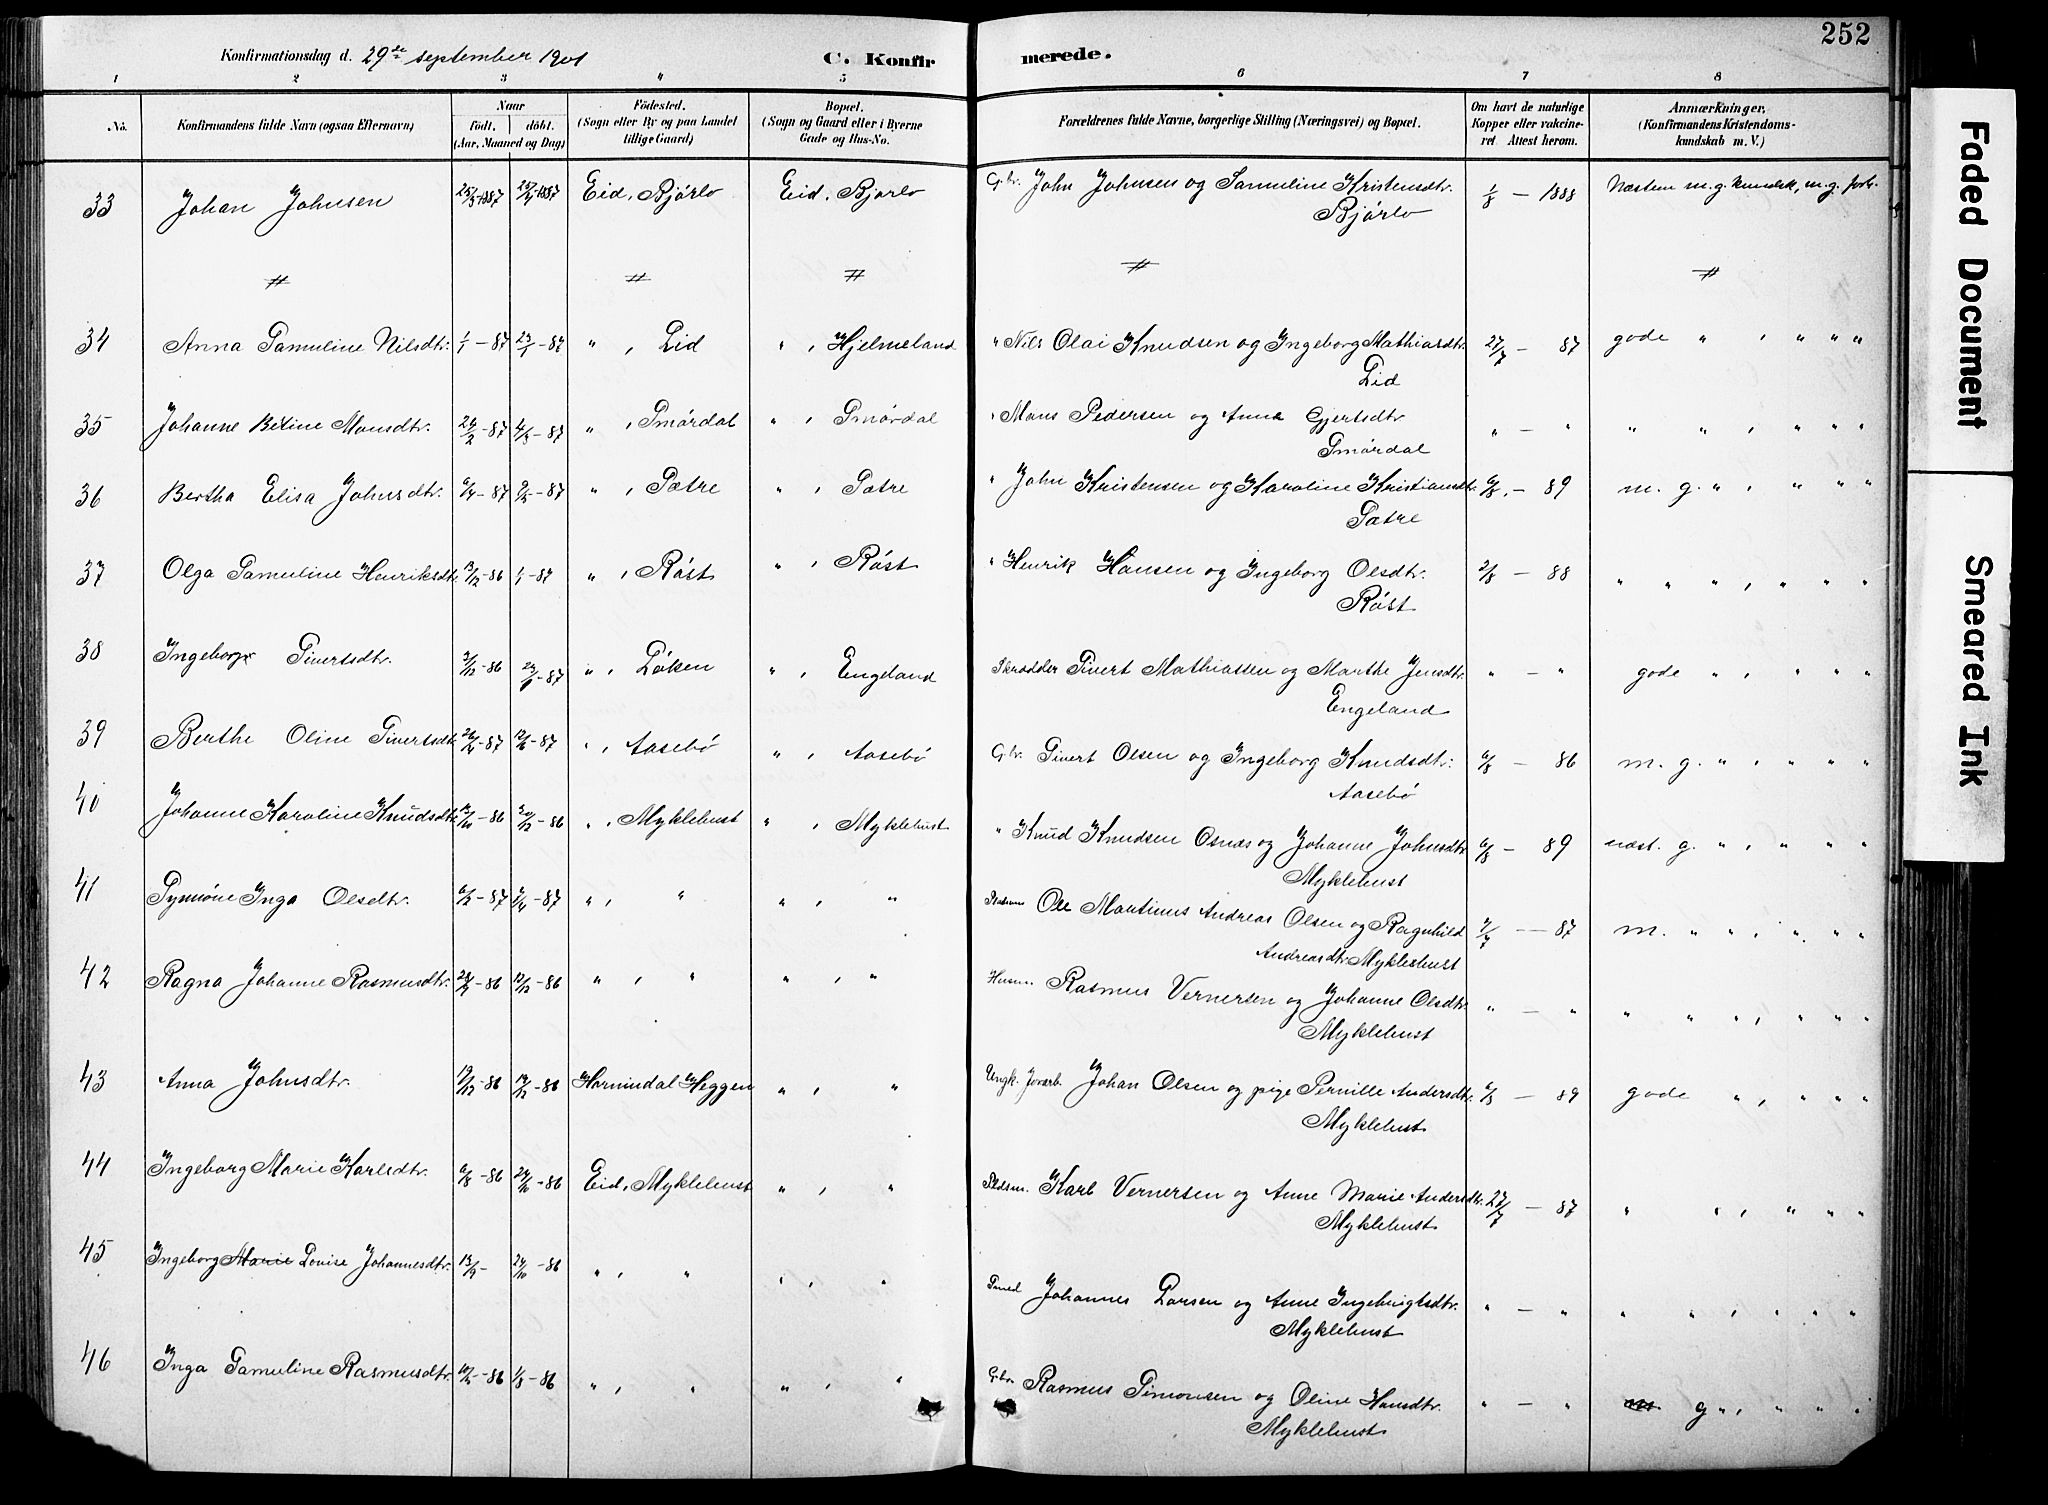 252
Konfirmationsdag d. 29de september 1901 C. Konfirmerede.
1 2 3 " 5 6 7 8
No. Konfirmandens fulde Navn (ogsaa Efternavn) Naar födt. döbt. (Aar, Maaned og Dag) Födested. (Sogn eller By og paa Landet tillige Gaard) Bopæl. (Sogn og Gaard eller i Byerne Gade og Hus-No. Forældrenes fulde Navne, borgerlige Stilling (Næringsvei) og Bopæl. Om havt de naturlige Kopper eller vakcineret. Attest herom. Anmærkninger. (Konfirmandens Kristendomskundskab m. V.)
33 Johan Johnsen Eid, Bjórlo Eid, Bjorlo Gbr. John Johnsen og Samuline Kristensdtr. 1/8 - 1888 Næsten m. g. kundsk, m. g. forh.
Bjórlo
34 Anna Samuline Nilsdtr. 1/1 - 87 23/1 - 87 " , Lid " , Hjelmeland " Nils Olai Knudsen og Ingeborg Mathiasdtr. 27/7 - 87 gode " , " " "
Lid
35 Johanne Betine Monsdtr. 24/2 - 87 4/3 - 87 " , Smórdal " , Smórdal " Mons Pedersen og Anna Gjertsdtr. " - " " " , " " "
Smórdal
36 Bertha Elisa Johnsdtr. " , Sætre " , Sætre " John Kristensen og Karoline Kristiansdtr. 6/8 - 89 m. g. " , " " "
Sætre
37 Olga Samuline Henriksdtr. 13/12 - 86 1/1 - 87 " , Róst " , Róst " Henrik Hansen og Ingeborg Olsdtr. 2/8 - 88 " " " , " " "
Róst
38 Ingeborg Sivertsdtr. " , Lóken " , Engeland Skrædder Sivert Mathiassen og Marthe Jensdtr. " - " gode " , " " "
Engeland
39 Berthe Oline Sivertsdtr. " , Aasebó " , Aasebó Gbr. Sivert Olsen og Ingeborg Knudsdtr. 6/8 - 86 m. g. " , " " "
Aasebó
40 Johanne Karoline Knudsdtr. " , Myklebust " , Myklebust " Knud Knudsen Osnes og Johanne Johnsdtr. 6/8 - 89 næst. g. " , " " "
Myklebust
41 Synnóve Inga Olsdtr. " , " " , " Ole Martinus Andreas Olsen og Ragnhild - 87 m. " " , " " "
Andreasdtr. Myklebust
42 Ragna Johanne Rasmusdtr. " , " " , " Husm. Rasmus Vernersen og Johanne Olsdtr. " - " " " " , " " "
Myklebust
43 Anna Johnsdtr. Hornindal Heggen " , " Ungk. Johan Olsen og pige Pernille Andersdtr. 6/8 - 89 gode " , " " "
Myklebust
44 Ingeborg Marie Karlsdtr. 6/8 - 86 24/10 - 86 Eid, Myklebust " , " Pldsm. Karl Vernersen og Anne Marie Andersdtr. 27/7 - 87 " " , " " "
Myklebust
45 Ingeborg Marie Lovise Johannesdtr. 13/9 - 24/10 - 86 " , " " , " Smed Johannes Larsen og Anne Ingebrigtsdtr. " - " " " , " " "
Myklebust
46 Inga Samuline Rasmusdtr. " , " " , " Gbr. Rasmus Simonsen og Oline Hansdtr. " - " m g " , " " "
Myklebust
Faded Document
Smeared Ink